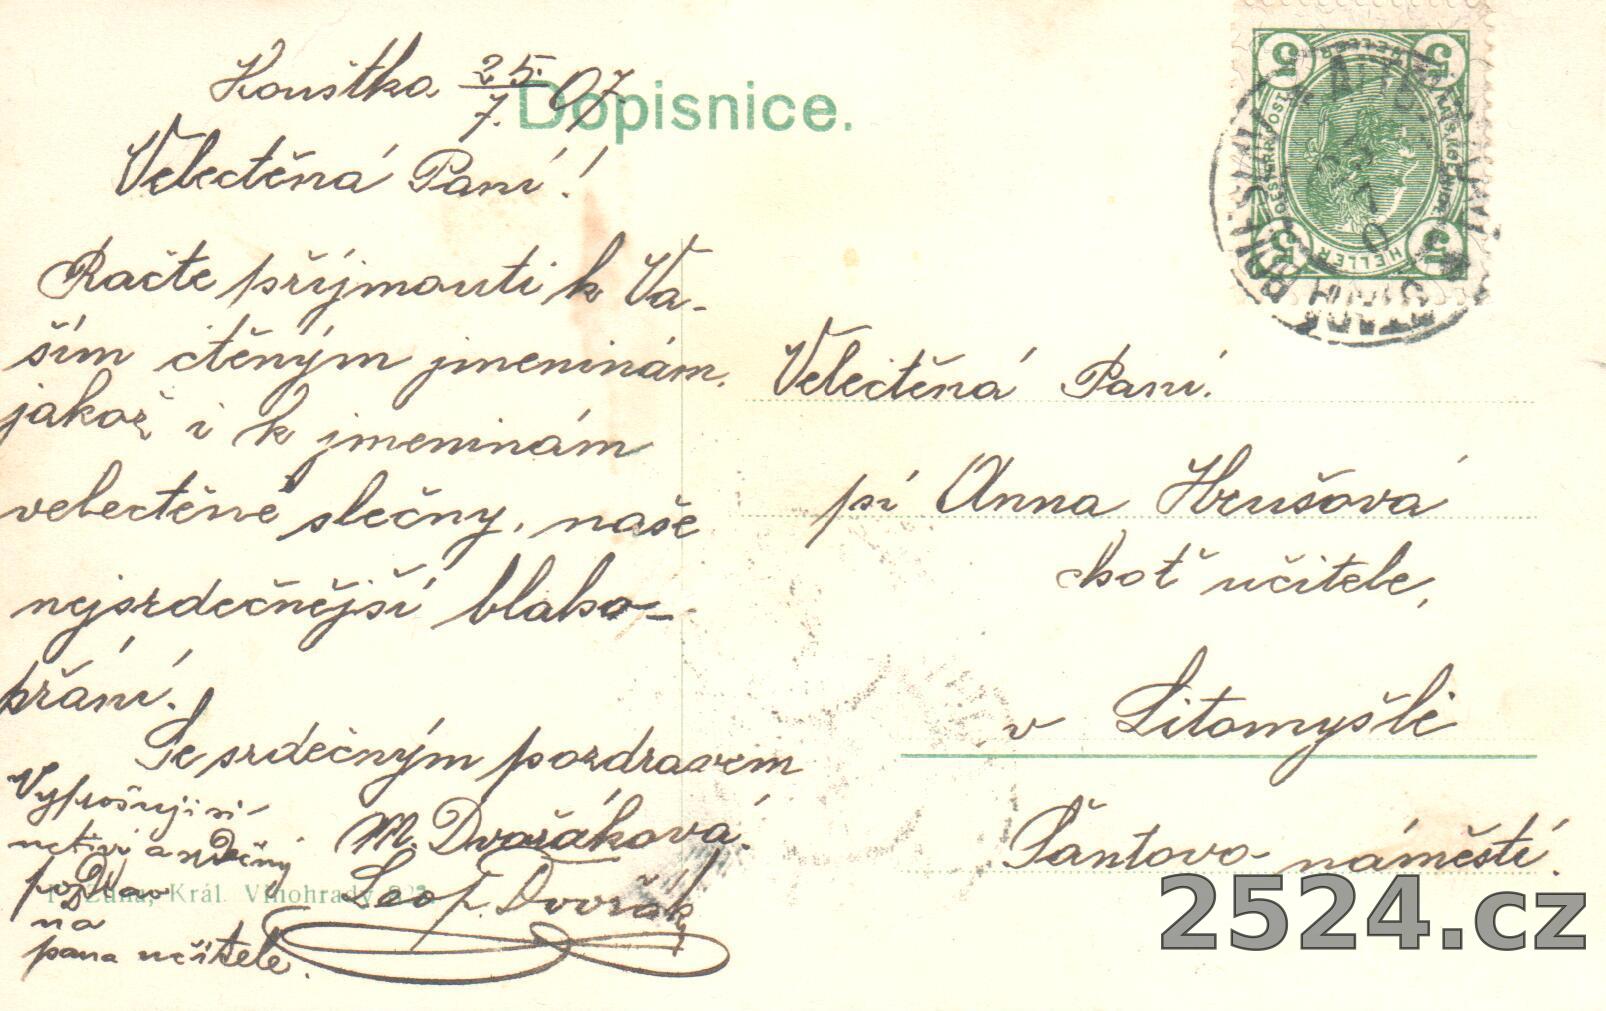 Koustka 25./7. 07.
Dopisnice.
Velectěná Paní!
Račte příjmouti k Va-
ším ctěným jmeninám,
jakož i k jmeninám
velectěné slečny, naše
nejsrdečnější blaho-
přání.
Se srdečným pozdravem
M. Dvořáková.
Leop. Dvořák
Vyprošuji si
uctivý a srdečný
pozdrav
na
pana učitele.
Král. Vinohrady
Velectěná Paní.
pí Anna Hrušova
choť učitele,
v Litomyšli
Šantovo náměstí.
5 5
HELLER
5 5
2524.cz